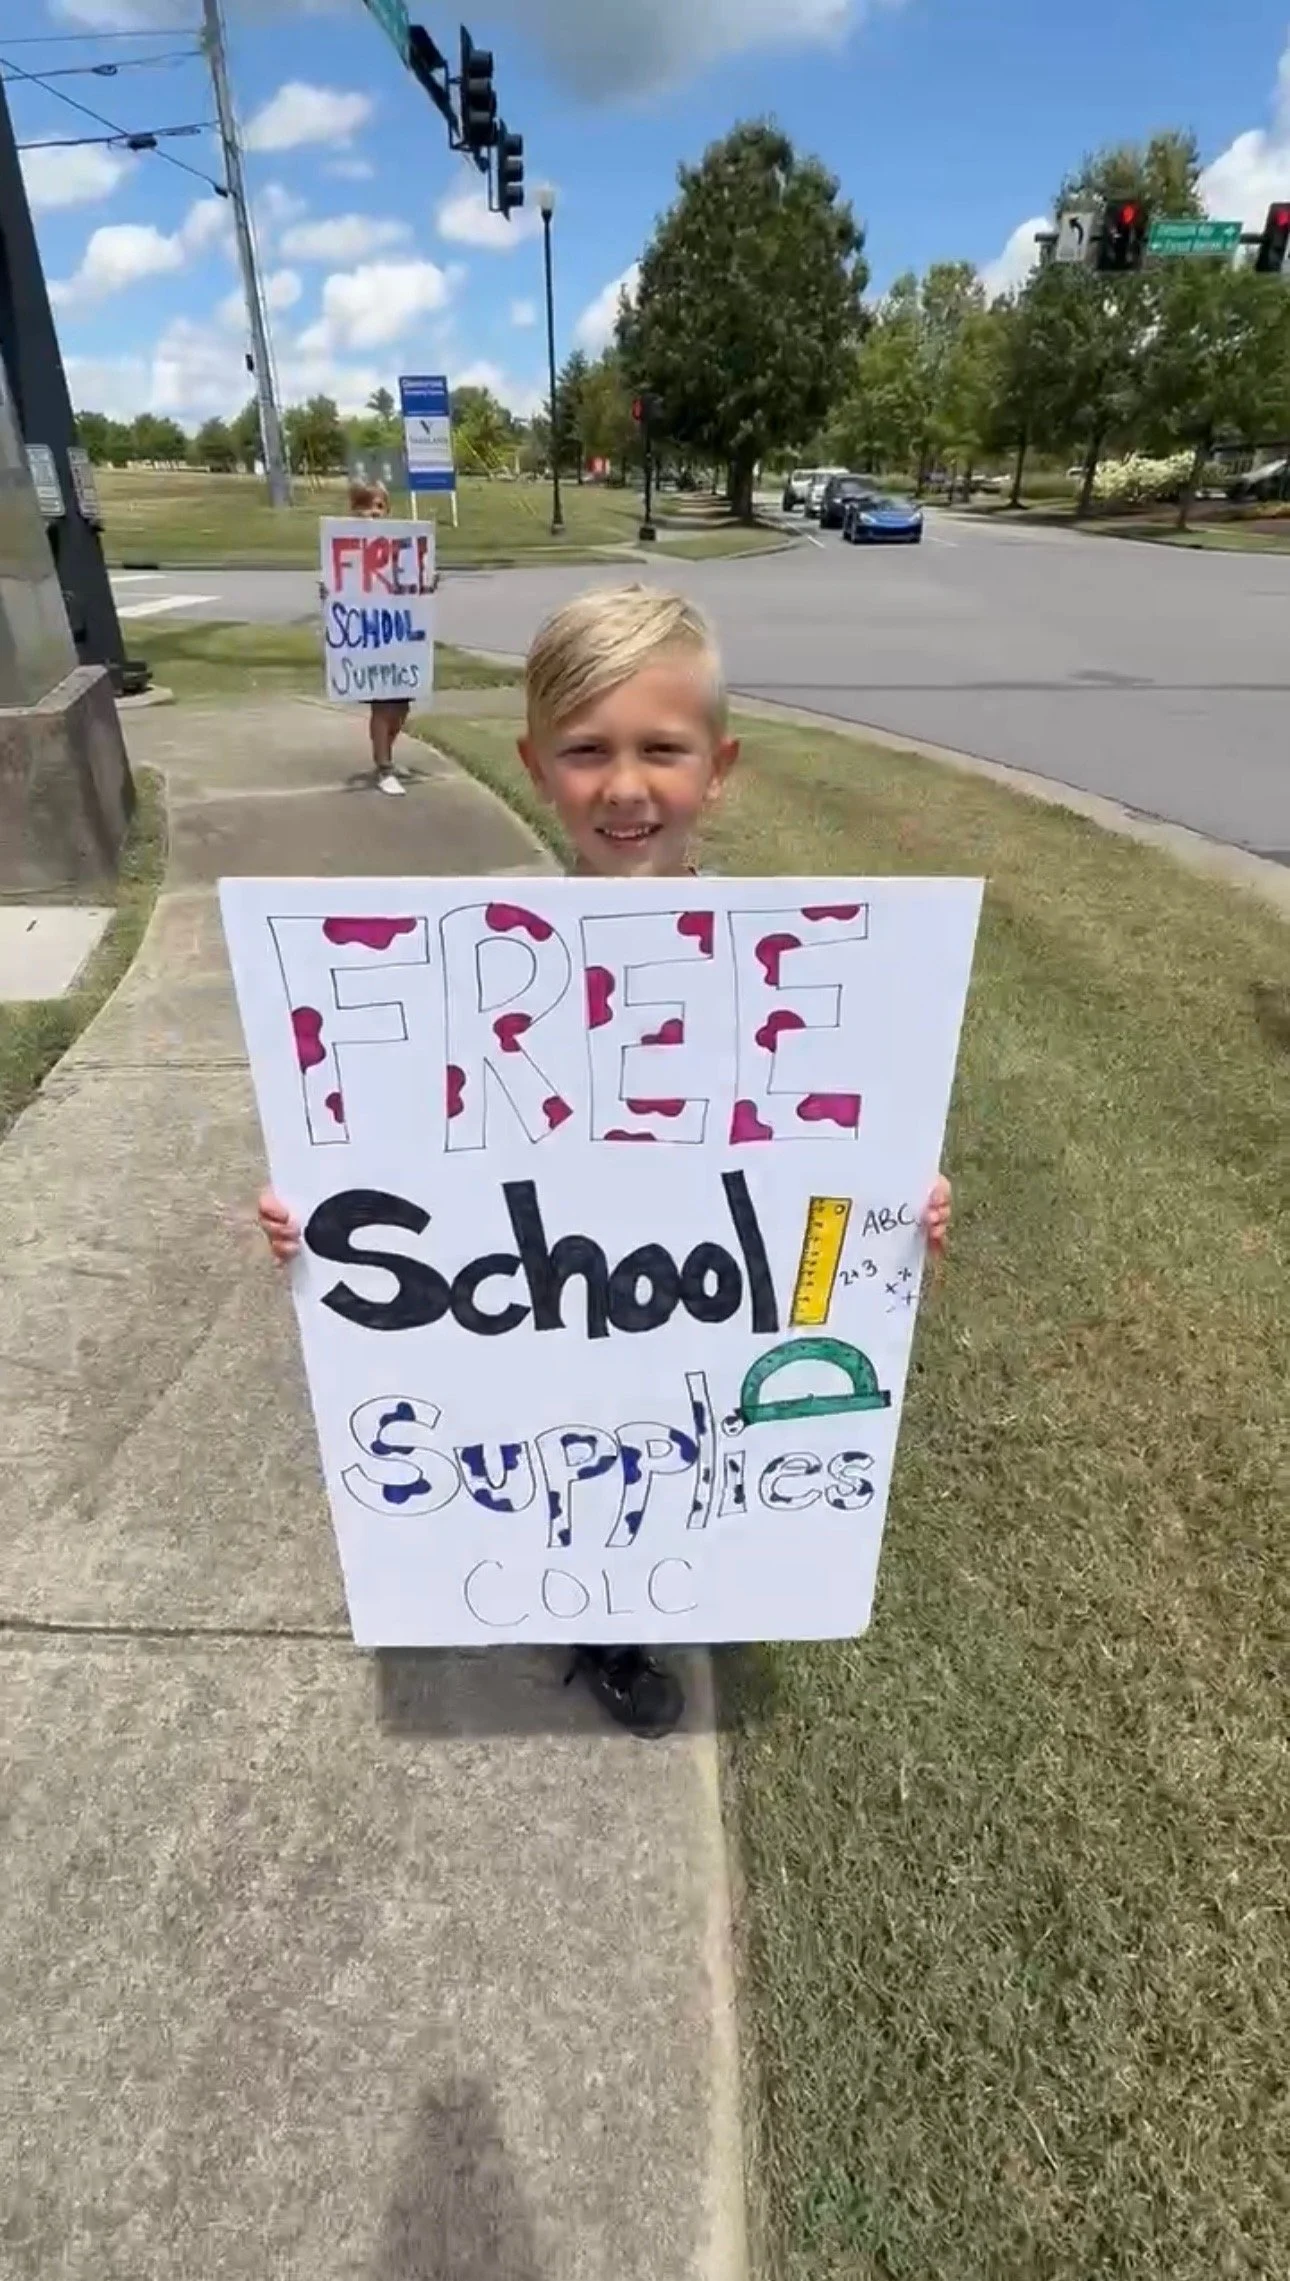 FREE
School
ABC
2+3
Supplies
COLC
FREE
SCHOOL
Supplies